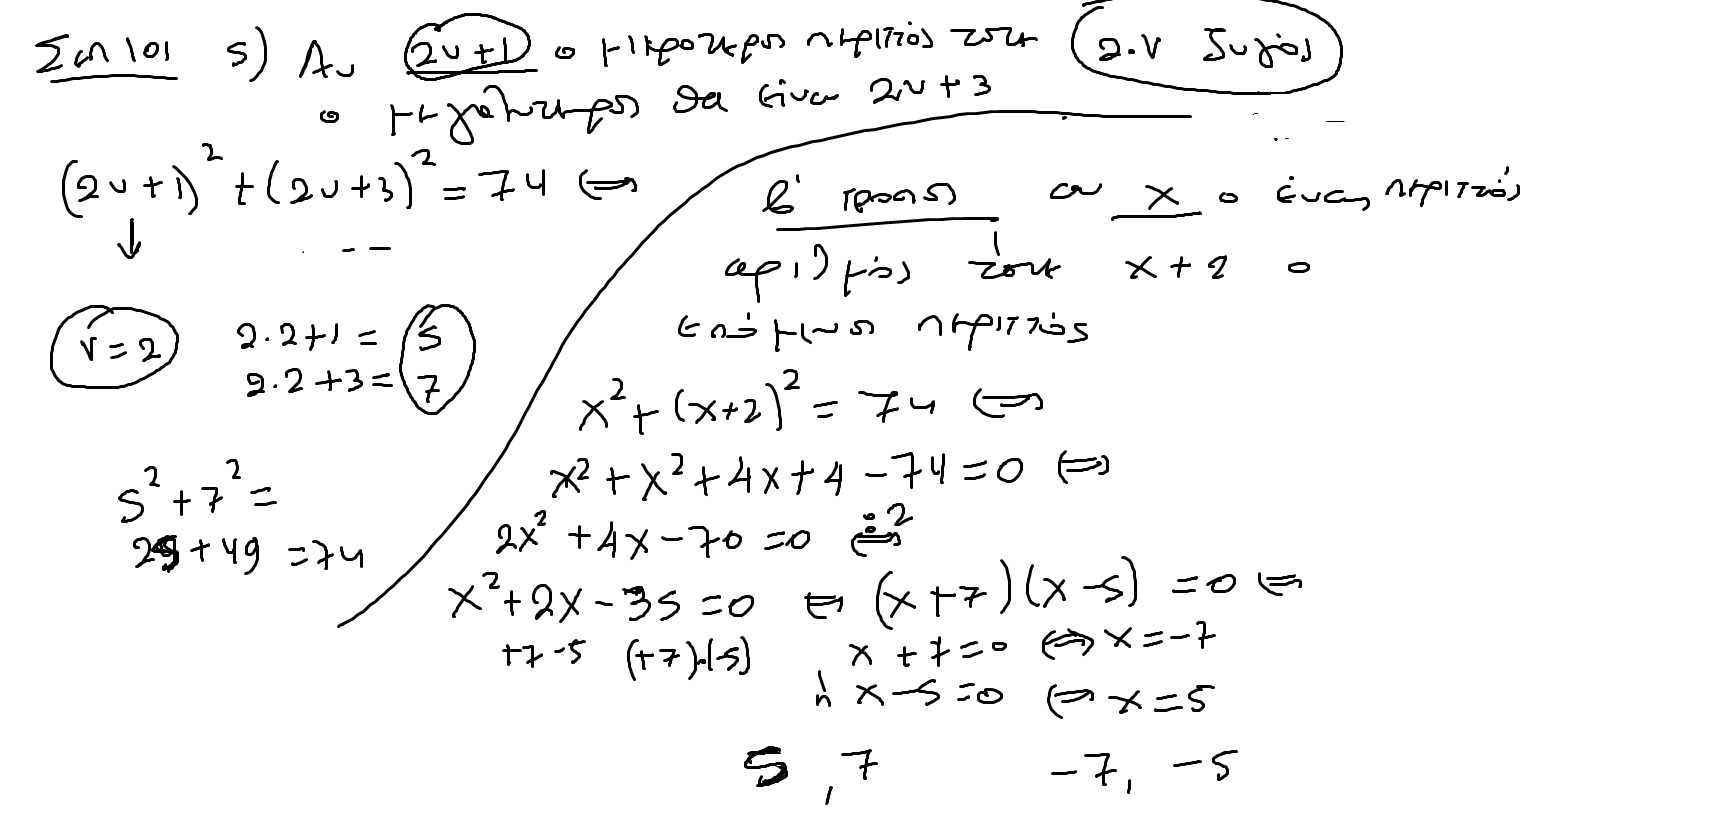 Σελ 101 5) Αν 2ν+1 ο μικρότερος περιττός τότε 2·ν ζυγός
ο μεγαλύτερος θα είναι 2ν+3
(2ν+1)² + (2ν+3)² = 74 ⇔
↓ . . --
ν=2 2·2+1 = 5
2·2+3 = 7
5² + 7² =
25 + 49 = 74
β' τρόπος αν x ο ένας περιττός
αριθμός τότε x+2 ο
επόμενος περιττός
x² + (x+2)² = 74 ⇔
x² + x² + 4x + 4 - 74 = 0 ⇔
2x² + 4x - 70 = 0 ⇔ :2
x² + 2x - 35 = 0 ⇔ (x+7)(x-5) = 0 ⇔
+7-5 (+7)·(-5) x + 7 = 0 ⇔ x = -7
ή x-5 = 0 ⇔ x = 5
5, 7 -7, -5